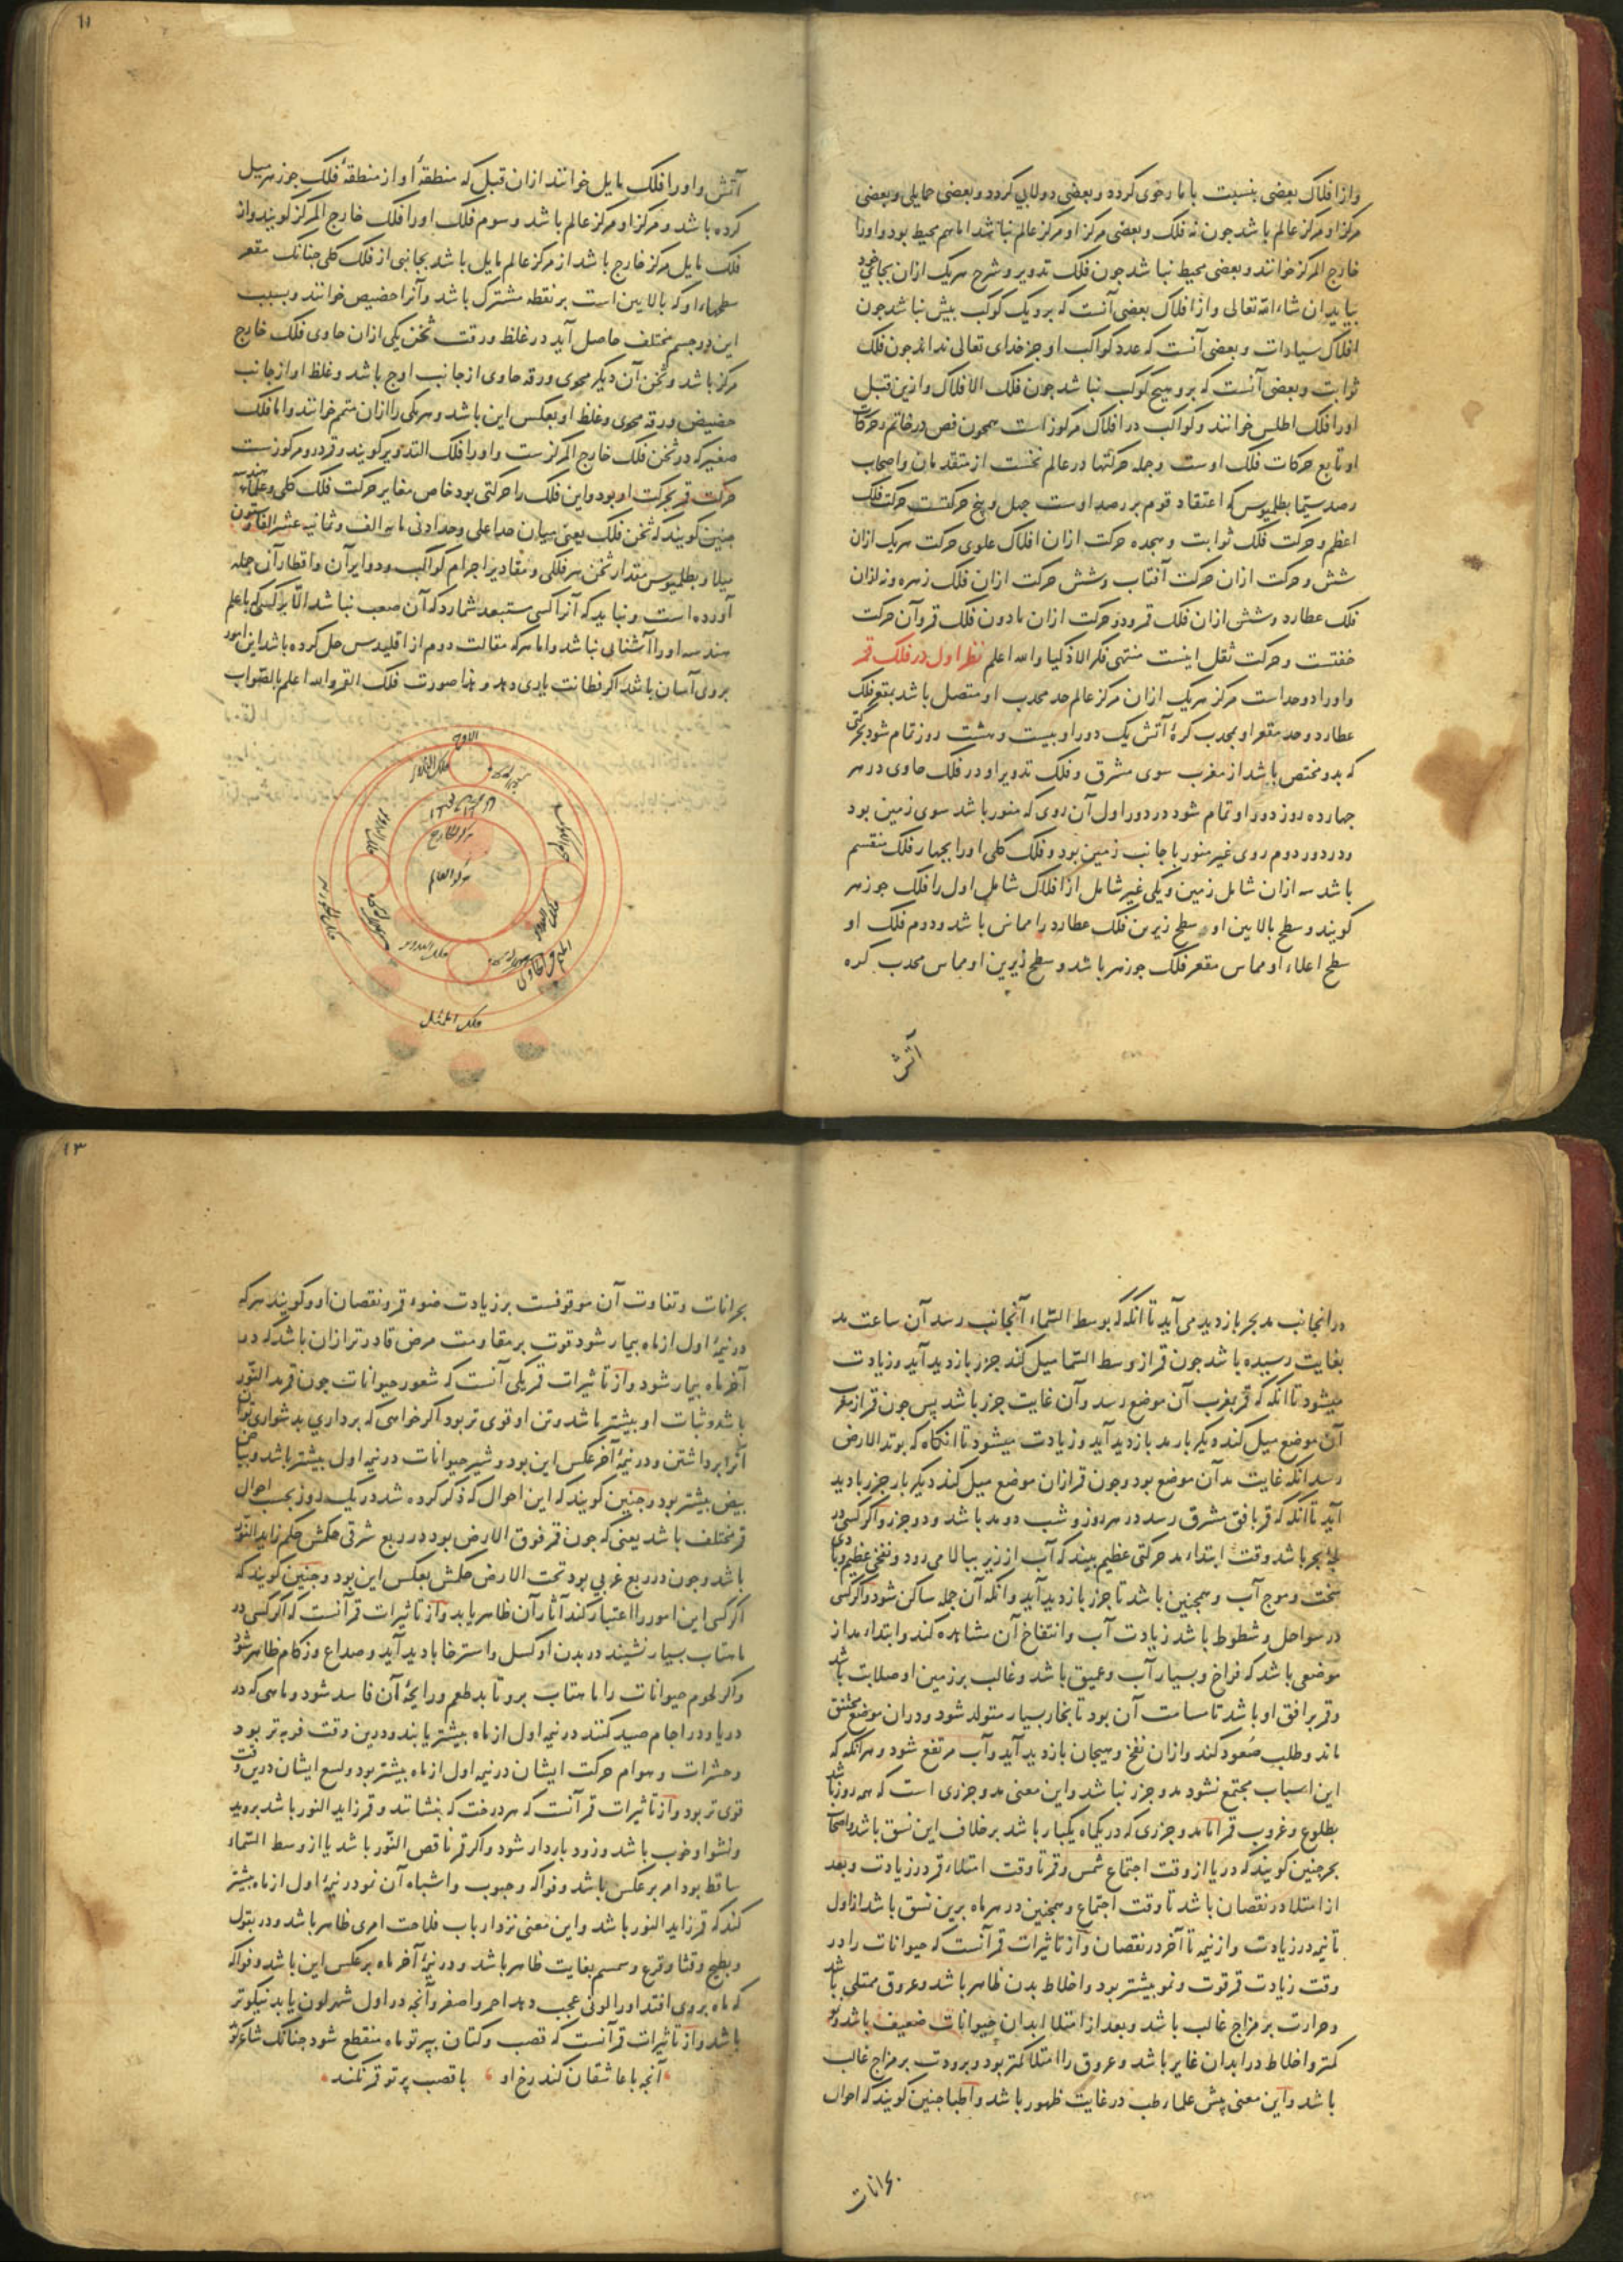 واز افلاک بعضی بنسبت با ما رحوی کرده و بعضی دولابی کردد و بعضی حمایلی و بعضی
مرکز او مرکز عالم باشد جون نه فلک و بعضی مرکز او مرکز عالم نباشد اما هم محیط بود و اورا
خارج المرکز خوانند و بعضی محیط نباشد جون فلک تدویر و شرح هریک ازان بجای خود
بیاید ان شاء الله تعالی و از افلاک بعضی آنست که برو یک کوکب بیش نباشد جون
افلاک سیارات و بعضی آنست که عدد کواکب او جز خدای تعالی نداند جون فلک
ثوابت و بعضی آنست که برو هیچ کوکب نباشد جون فلک الافلاک و ازین قبل
اورا فلک اطلس خوانند و کواکب در افلاک مرکوز است همجون فص در خاتم و حرکات
او تابع حرکات فلک اوست و جمله حرکتها در عالم نخست از متقدمان و اصحاب
رصد سیما بطلمیوس که اعتقاد قوم بر رصد اوست جهل و پنج حرکتست حرکت فلک
اعظم و حرکت فلک ثوابت و هجده حرکت ازان افلاک علوی حرکت هریک ازان
شش و حرکت ازان حرکت آفتاب و شش حرکت ازان فلک زهره و نه ازان
فلک عطارد و شش ازان فلک قمر و دو حرکت ازان مادون فلک قمر و آن حرکت
خفتست و حرکت ثقل اینست منتهی فکر الاذکیا والله اعلم نظر اول در فلک قمر
و اورا دو حد است مرکز هریک ازان مرکز عالم حد محدب او متصل باشد بمقعر فلک
عطارد و حد مقعر او بمحدب کرهٔ آتش یک دور او بیست و هشت روز تمام شود بحرکتی
که بدو مختص باشد از مغرب سوی مشرق و فلک تدویر او در فلک حاوی در هر
جهارده روز دور او تمام شود در دور اول آن روی که منور باشد سوی زمین بود
و در دور دوم روی غیر منور با جانب زمین بود و فلک کلی او را بجهار فلک منقسم
باشد سه ازان شامل زمین و یکی غیر شامل از افلاک شامل اول را فلک جوزهر
کویند و سطح بالایین او سطح زیرین فلک عطارد را مماس باشد و دوم فلک او
سطح اعلاء او مماس مقعر فلک جوزهر باشد و سطح زیرین او مماس محدب کره
آتش
۱۱
آتش و اورا فلک مایل خوانند ازان قبل که منطقهٔ او از منطقهٔ فلک جوزهر میل
کرده باشد و مرکز او مرکز عالم باشد و سوم فلک اورا فلک خارج المرکز کویند و از
فلک مایل مرکز خارج باشد از مرکز عالم مایل باشد بجانبی از فلک کلی جنانک مقعر
سطحهاء او که بالایین است بر نقطه مشترک باشد و آنرا حضیض خوانند و بسبب
این دو جسم مختلف حاصل آید در غلظ و رقت ثخن یکی ازان حاوی فلک خارج
مرکز باشد و ثخن آن دیگر محوی و رقه حاوی از جانب اوج باشد و غلظ او از جانب
حضیض و رقه محوی و غلظ او بعکس این باشد و هریکی را ازان متمم خوانند و اما فلک
صغیر که در ثخن فلک خارج المرکزست و اورا فلک التدویر کویند و قمر درو مرکوزست
حرکت قمر بحرکت او بود و این فلک را حرکتی بود خاص مغایر حرکت فلک کلی و علماء
جنین کویند که ثخن فلک یعنی میان حد اعلی و حد ادنی مایه الف و ثمانیه عشر الفا و ستون
میلا و بطلمیوس مقدار ثخن هر فلکی و مقادیر اجرام کواکب و دوایر آن و اقطار آن جمله
آورده است و نباید که آنرا کسی مستبعد شمارد که آن صعب نباشد الا بر کسی که با علم
هندسه اورا آشنایی نباشد و اما هرکه مقالت دوم از اقلیدس حل کرده باشد این امور
بروی آسان باشد اکر فطانت یاری دهد و هذا صورت فلک القمر والله اعلم بالصواب
الاوج
فلک التدویر
مرکز الخارج
مرکز العالم
فلک التدویر
فلک التدویر
فلک الممثل
در انجانب مد بحر بازدید می آید تا آنکه که بوسط السماء آنجانب رسد آن ساعت مد
بغایت رسیده باشد جون قمر از وسط السما میل کند جزر بازدید آید و زیادت
میشود تا آنکه که قمر بمغرب آن موضع رسد و آن غایت جزر باشد پس جون قمر از مغرب
آن موضع میل کند دیگر بار مد بازدید آید و زیادت میشود تا انگاه که بوتد الارض
رسد آنکه غایت مد آن موضع بود و جون قمر ازان موضع میل کند دیگر بار جزر بادید
آید تا آنکه که قمر بافق مشرق رسد در هر روز و شب دو مد باشد و دو جزر و اکر کسی در
لجهٔ بحر باشد وقت ابتداء مد حرکتی عظیم بیند که آب از زیر ببالا می رود و نفخی عظیم و بادی
سخت و موج آب و همجنین باشد تا جزر بازدید آید وانکه آن جمله ساکن شود و اکر کسی
در سواحل و شطوط باشد زیادت آب و انتفاخ آن مشاهده کند و ابتداء مد از
موضعی باشد که فراخ و بسیار آب و عمیق باشد و غالب بر زمین او صلابت باشد
و قمر بر افق او باشد تا مسامت آن بود تا بخار بسیار متولد شود و دران موضع مختنق
ماند و طلب صعود کند و ازان نفخ و هیجان بازدید آید و آب مرتفع شود و هر آنکه که
این اسباب مجتمع نشود مد و جزر نباشد و این معنی مد و جزری است که هر روز باشد
بطلوع و غروب قمر اما مد و جزری که در یکماه یکبار باشد بر خلاف این نسق باشد و اصحاب
بحر جنین کویند که دریا از وقت اجتماع شمس و قمر تا وقت امتلاء قمر در زیادت و بعد
از امتلا در نقصان باشد تا وقت اجتماع و همجنین در هر ماه برین نسق باشد از اول
تا نیمه در زیادت و از نیمه تا آخر در نقصان و از تاثیرات قمر آنست که حیوانات را در
وقت زیادت قمر قوت و نمو بیشتر بود و اخلاط بدن ظاهر باشد و عروق ممتلی باشد
و حرارت بر مزاج غالب باشد و بعد از امتلا ابدان حیوانات ضعیف باشد و نمو
کمتر و اخلاط در ابدان غایر باشد و عروق را امتلا کمتر بود و برودت بر مزاج غالب
باشد و این معنی پیش علماء طب در غایت ظهور باشد و اطبا جنین کویند که احوال
بحرانات
۱۳
بحرانات و تفاوت آن موقوفست بر زیادت ضوء قمر و نقصان او و کویند هرکه
در نیمهٔ اول از ماه بیمار شود قوت بر مقاومت مرض قادرتر ازان باشد که در
آخر ماه بیمار شود و از تاثیرات قمر یکی آنست که شعور حیوانات جون قمر زاید النور
باشد و ثبات او بیشتر باشد و تن او قوی تر بود اکر خواهی که برداری بدشواری توان
آنرا برداشتن و در نیمهٔ آخر عکس این بود و شیر حیوانات در نیمه اول بیشتر باشد و بیاض
بیض بیشتر بود و جنین کویند که این احوال که ذکر کرده شد در یک روز بحسب احوال
قمر مختلف باشد یعنی که جون قمر فوق الارض بود در ربع شرقی حکمش حکم زاید النور
باشد و جون در ربع غربی بود تحت الارض حکمش بعکس این بود و جنین کویند که
اکر کسی این امور را اعتبار کند آثار آن ظاهر یابد و از تاثیرات قمر آنست که اکر کسی در
ماهتاب بسیار نشیند در بدن او کسل و استرخا بادید آید و صداع و زکام ظاهر شود
و اکر لحوم حیوانات را ماهتاب برو تابد طعم و رایحهٔ آن فاسد شود و ماهی که در
دریا و در اجام صید کنند در نیمه اول از ماه بیشتر یابند و درین وقت فربه تر بود
و حشرات و هوام حرکت ایشان در نیمه اول از ماه بیشتر بود و لسع ایشان درین وقت
قوی تر بود و از تاثیرات قمر آنست که هر درخت که بنشانند و قمر زاید النور باشد بروید
و نشو او خوب باشد و زود باردار شود و اکر قمر ناقص النور باشد یا از وسط السماء
ساقط بود امر بر عکس باشد و فواکه و حبوب و اشباه آن نمو در نیمهٔ اول از ماه بیشتر
کند که قمر زاید النور باشد و این معنی نزد ارباب فلاحت امری ظاهر باشد و در بقول
و بطیخ و قثا و قرع و سمسم بغایت ظاهر باشد و در نیمهٔ آخر ماه بر عکس این باشد و فواکه
که ماه بروی افتد اورا لونی عجب دهد احمر و اصفر و آنجه در اول شهر لون یابد نیکوتر
باشد و از تاثیرات قمر آنست که قصب و کتان بپرتو ماه منقطع شود جنانک شاعر کوید
آنجه با عاشقان کند رخ او با قصب پرتو قمر نکند